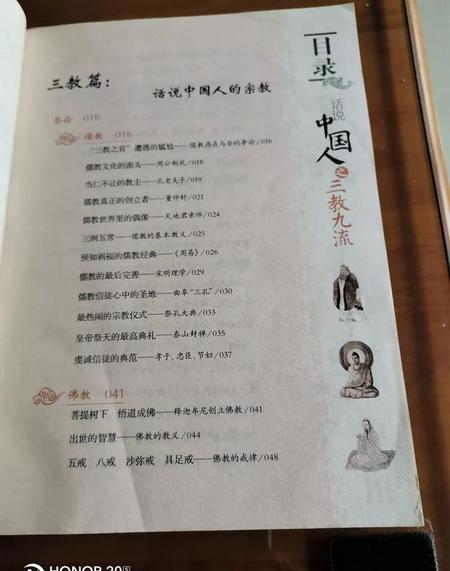 目录
话说
中国人
之
三教九流
三教篇：
话说中国人的宗教
卷论 016
儒教 016
“三教之首”遭遇的尴尬——儒教存在与否的争论/016
儒教文化的源头——周公制礼/018
当仁不让的教主——孔老夫子/019
儒教真正的创立者——董仲舒/021
儒教世界里的偶像——天地君亲师/024
三纲五常——儒教的基本教义/025
预知祸福的儒教经典——《周易》/026
儒教的最后完善——宋明理学/029
儒教信徒心中的圣地——曲阜“三孔”/030
最热闹的宗教仪式——祭孔大典/033
皇帝祭天的最高典礼——泰山封禅/035
虔诚信徒的典范——孝子、忠臣、节妇/037
佛教 041
菩提树下 悟道成佛——释迦牟尼创立佛教/041
出世的智慧——佛教的教义/044
五戒 八戒 沙弥戒 具足戒——佛教的戒律/048
HONOR 20S